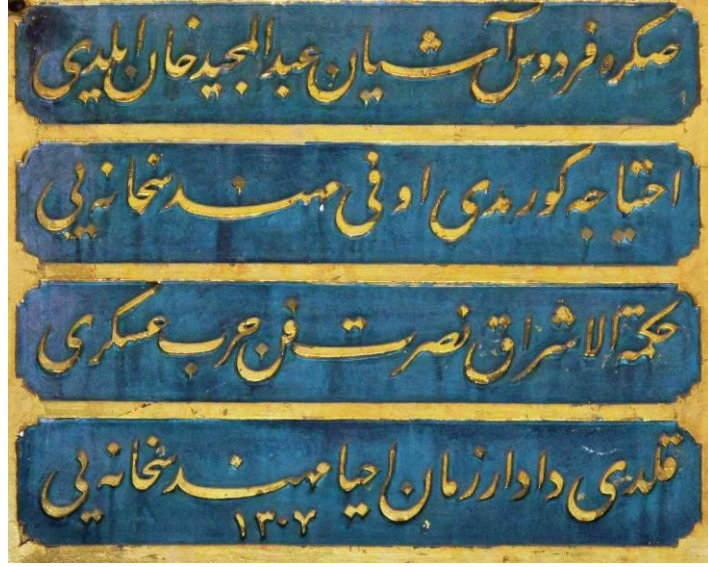 صكره فردوس آشيان عبد المجيد خان ايلدى
احتياجه كوره مدى اوفى مهندسخانه يى
حكمة الاشراق نصرت فن حرب عسكرى
قلدى دادار زمان احيا مهندسخانه يى
١٣٠٧